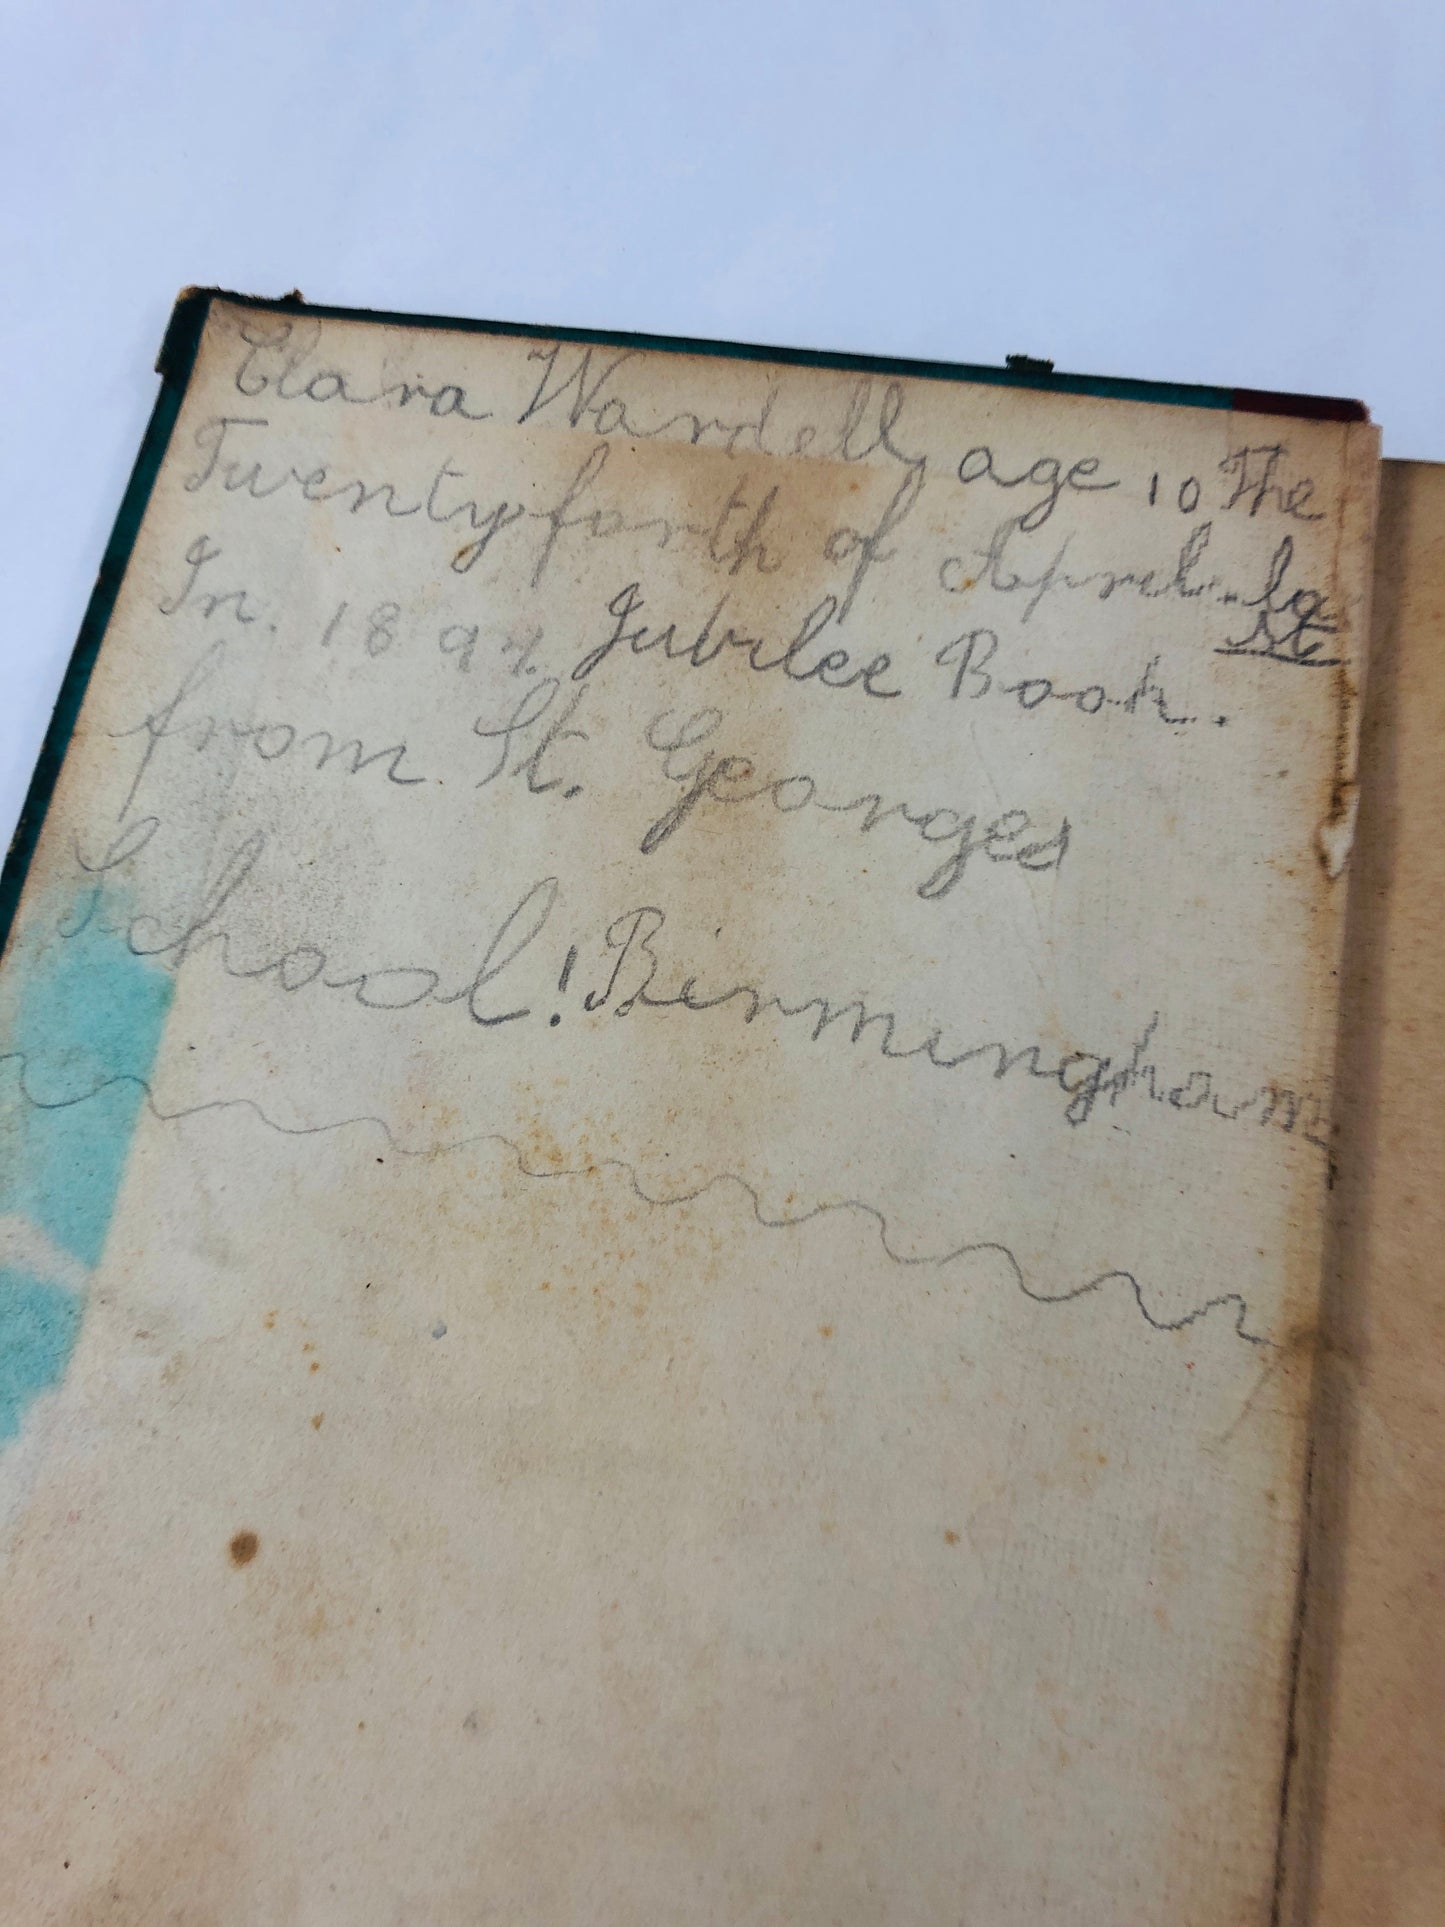 Clara Wardell age 10 The
Twentyforth of April. la
st
In. 1897. Jubilee Book.
from St. Georges
School! Birmingham